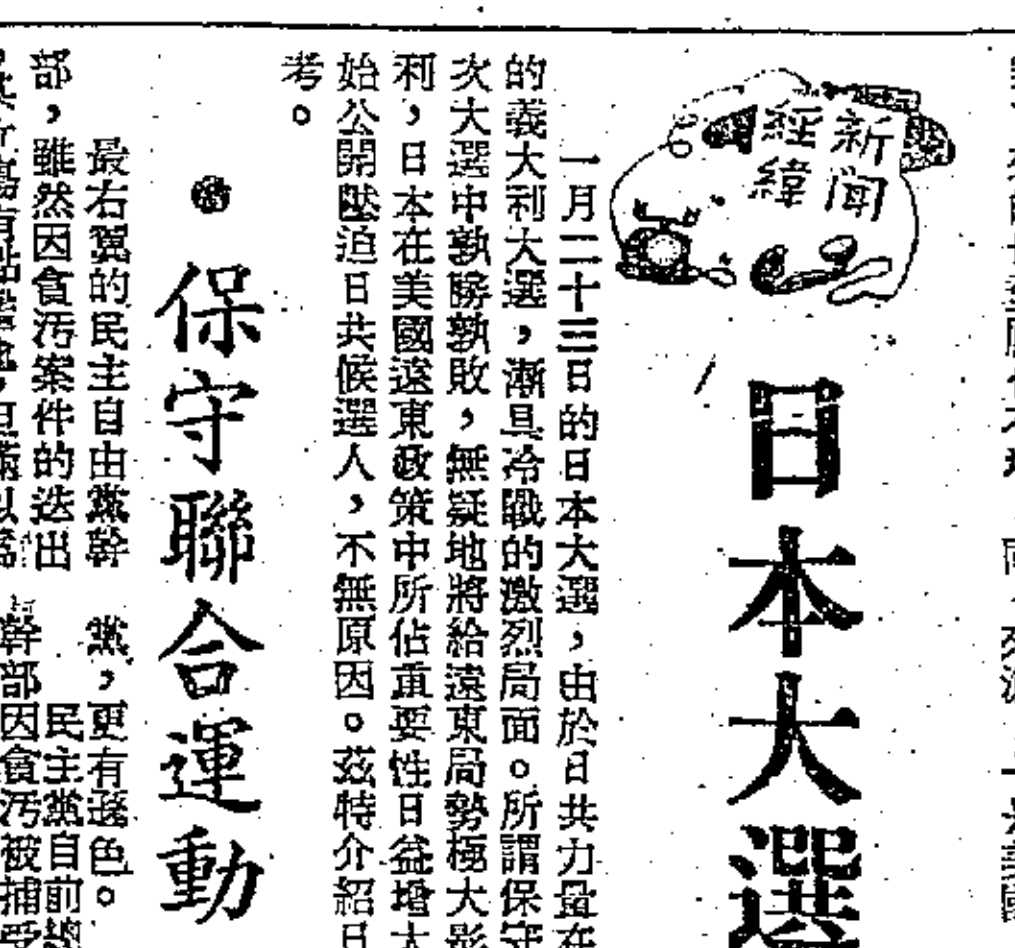 新聞
經緯
日本大選
一月二十三日的日本大選，由於日共力量在
的義大利大選，漸具冷戰的激烈局面。所謂保守
次大選中孰勝孰敗，無疑地將給遠東局勢極大影
利，日本在美國遠東政策中所佔重要性日益增大
始公開壓迫日共候選人，不無原因。茲特介紹日
考。
保守聯合運動
最右翼的民主自由黨幹
部，雖然因貪污案件的迭出
黨，更有遜色。
民主黨自前總
幹部因貪污被捕受